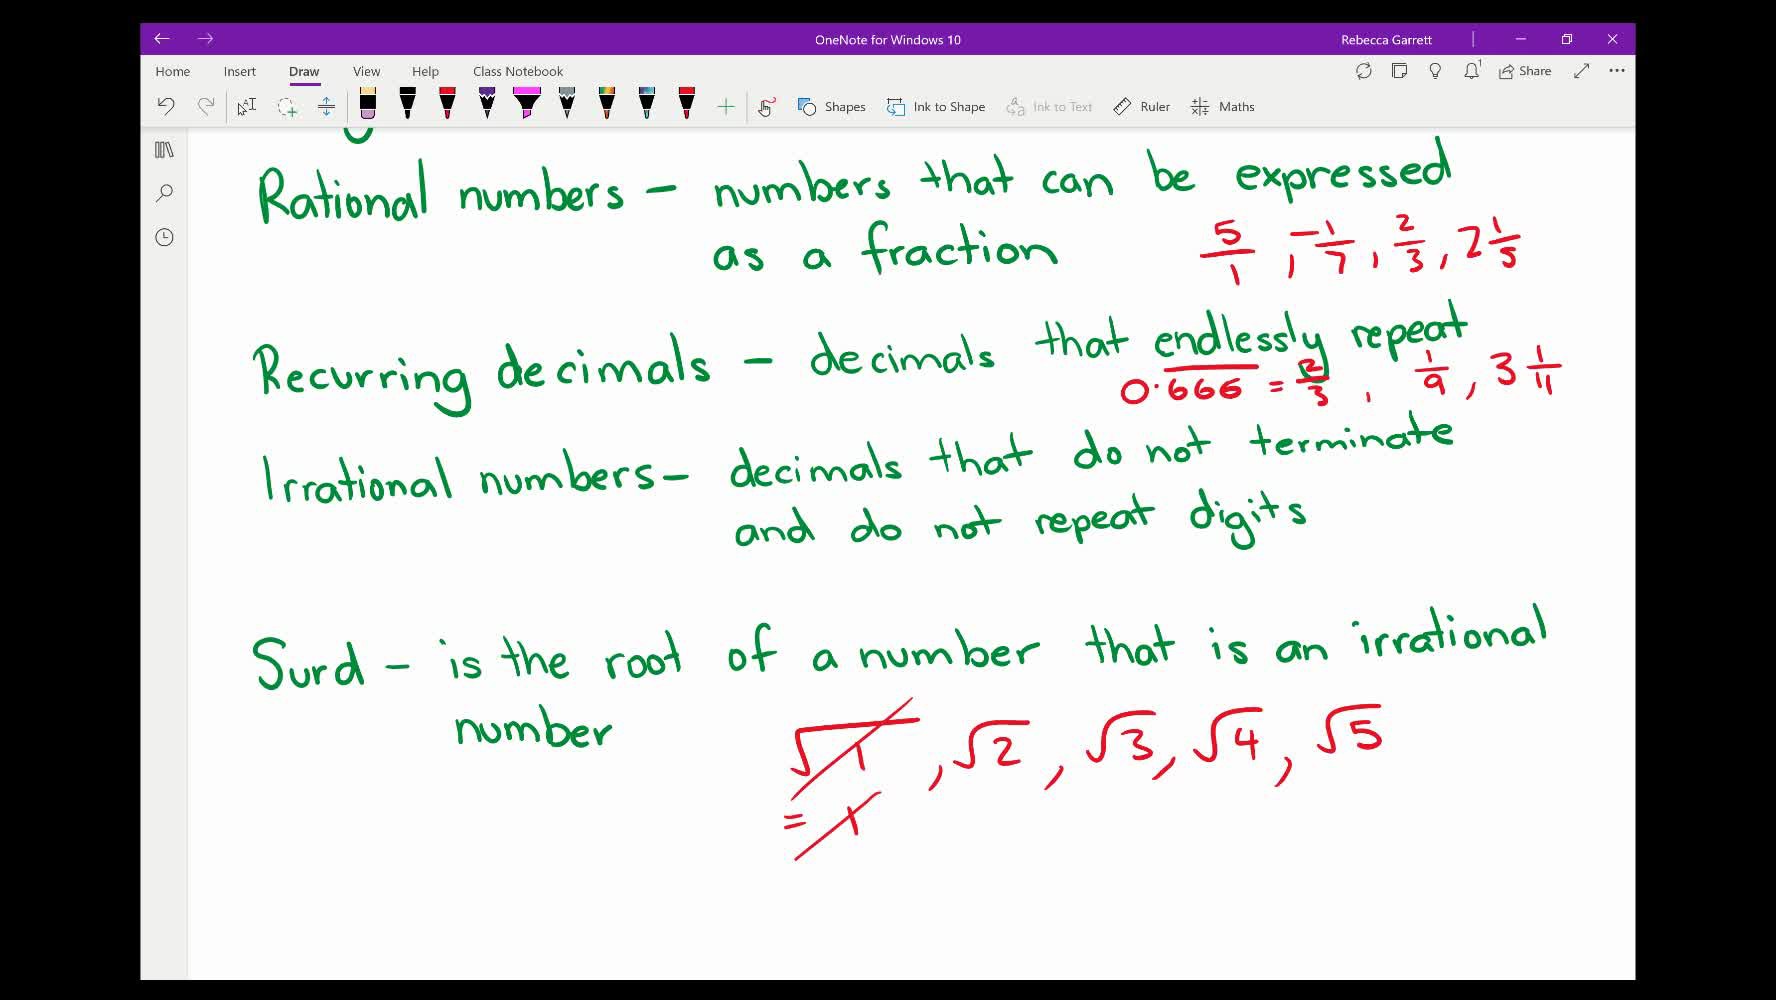 OneNote for Windows 10
Rebecca Garrett
Home Insert Draw View Help Class Notebook
1
Share
Shapes Ink to Shape Ink to Text Ruler Maths
Rational numbers - numbers that can be expressed
as a fraction
5/1, -1/7, 2/3, 2 1/5
Recurring decimals - decimals that endlessly repeat
0.666 = 2/3, 1/9, 3 1/11
Irrational numbers - decimals that do not terminate
and do not repeat digits
Surd - is the root of a number that is an irrational
number
√1, √2, √3, √4, √5
= 1